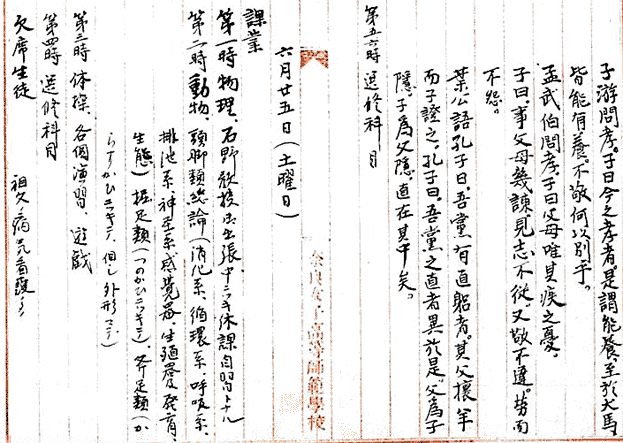 子游問孝。子曰今之孝者。是謂能養。至於犬馬
皆能有養。不敬何以別乎。
孟武伯問孝。子曰父母唯其疾之憂。
子曰事父母幾諫。見志不從。又敬不違。労而
不怨。
葉公語孔子曰。吾黨有直躬者。其父攘羊
而子證之。孔子曰。吾黨之直者異於是。父為子
隠子為父隠。直在其中矣。
第五六時 選修科目
奈良女子高等師範學校
六月廿五日(土曜日)
課業
第一時 物理、石野教授出張中ニツキ休課自習トナル
第二時 動物、頭脚類総論(消化系、循環系、呼吸系、
排泄系、神圣系、感覚器、生殖発育
生態)掘足類(つのがひニツキテ)、斧足類(か
らすがひニツキテ、但し外形マデ)
第三時 体操、各個演習、遊戯
第四時 選修科目
欠席生徒 祖父病気看護